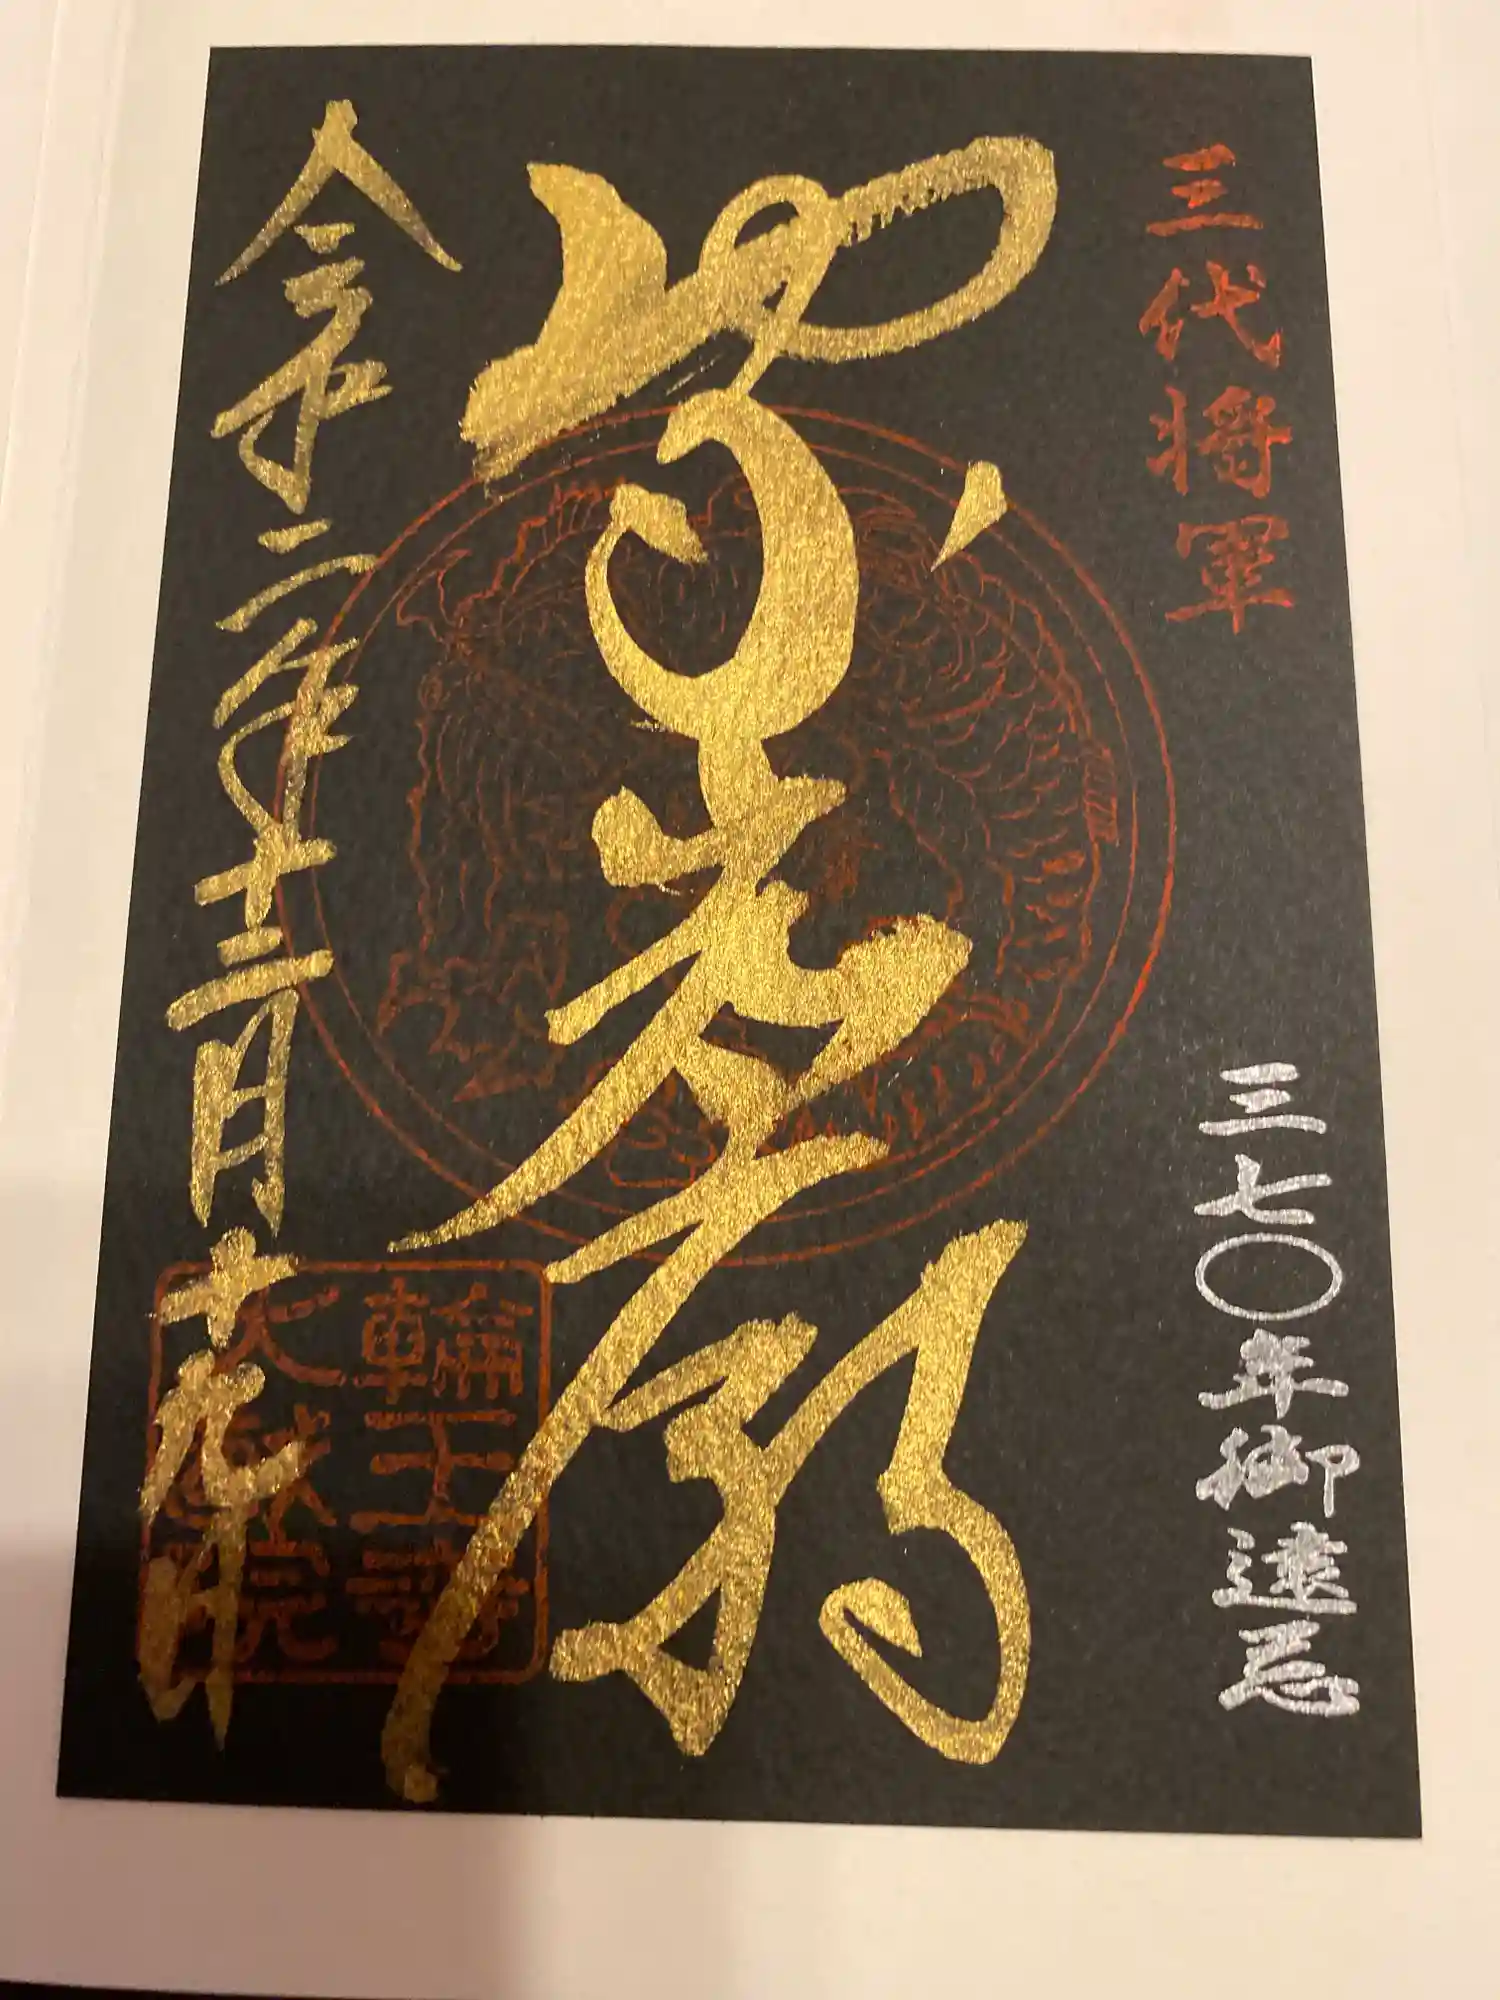 三代将軍
三七〇年御遠忌
家光廟
令和二年十二月十九日
輪王寺
大猷院